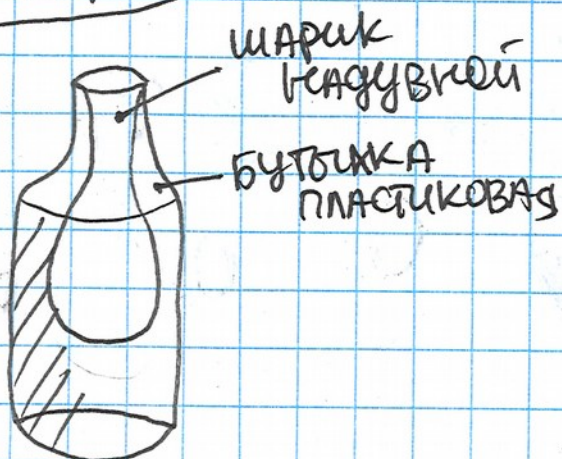 ШАРИК
НАДУВНОЙ
БУТЫЛКА
ПЛАСТИКОВАЯ